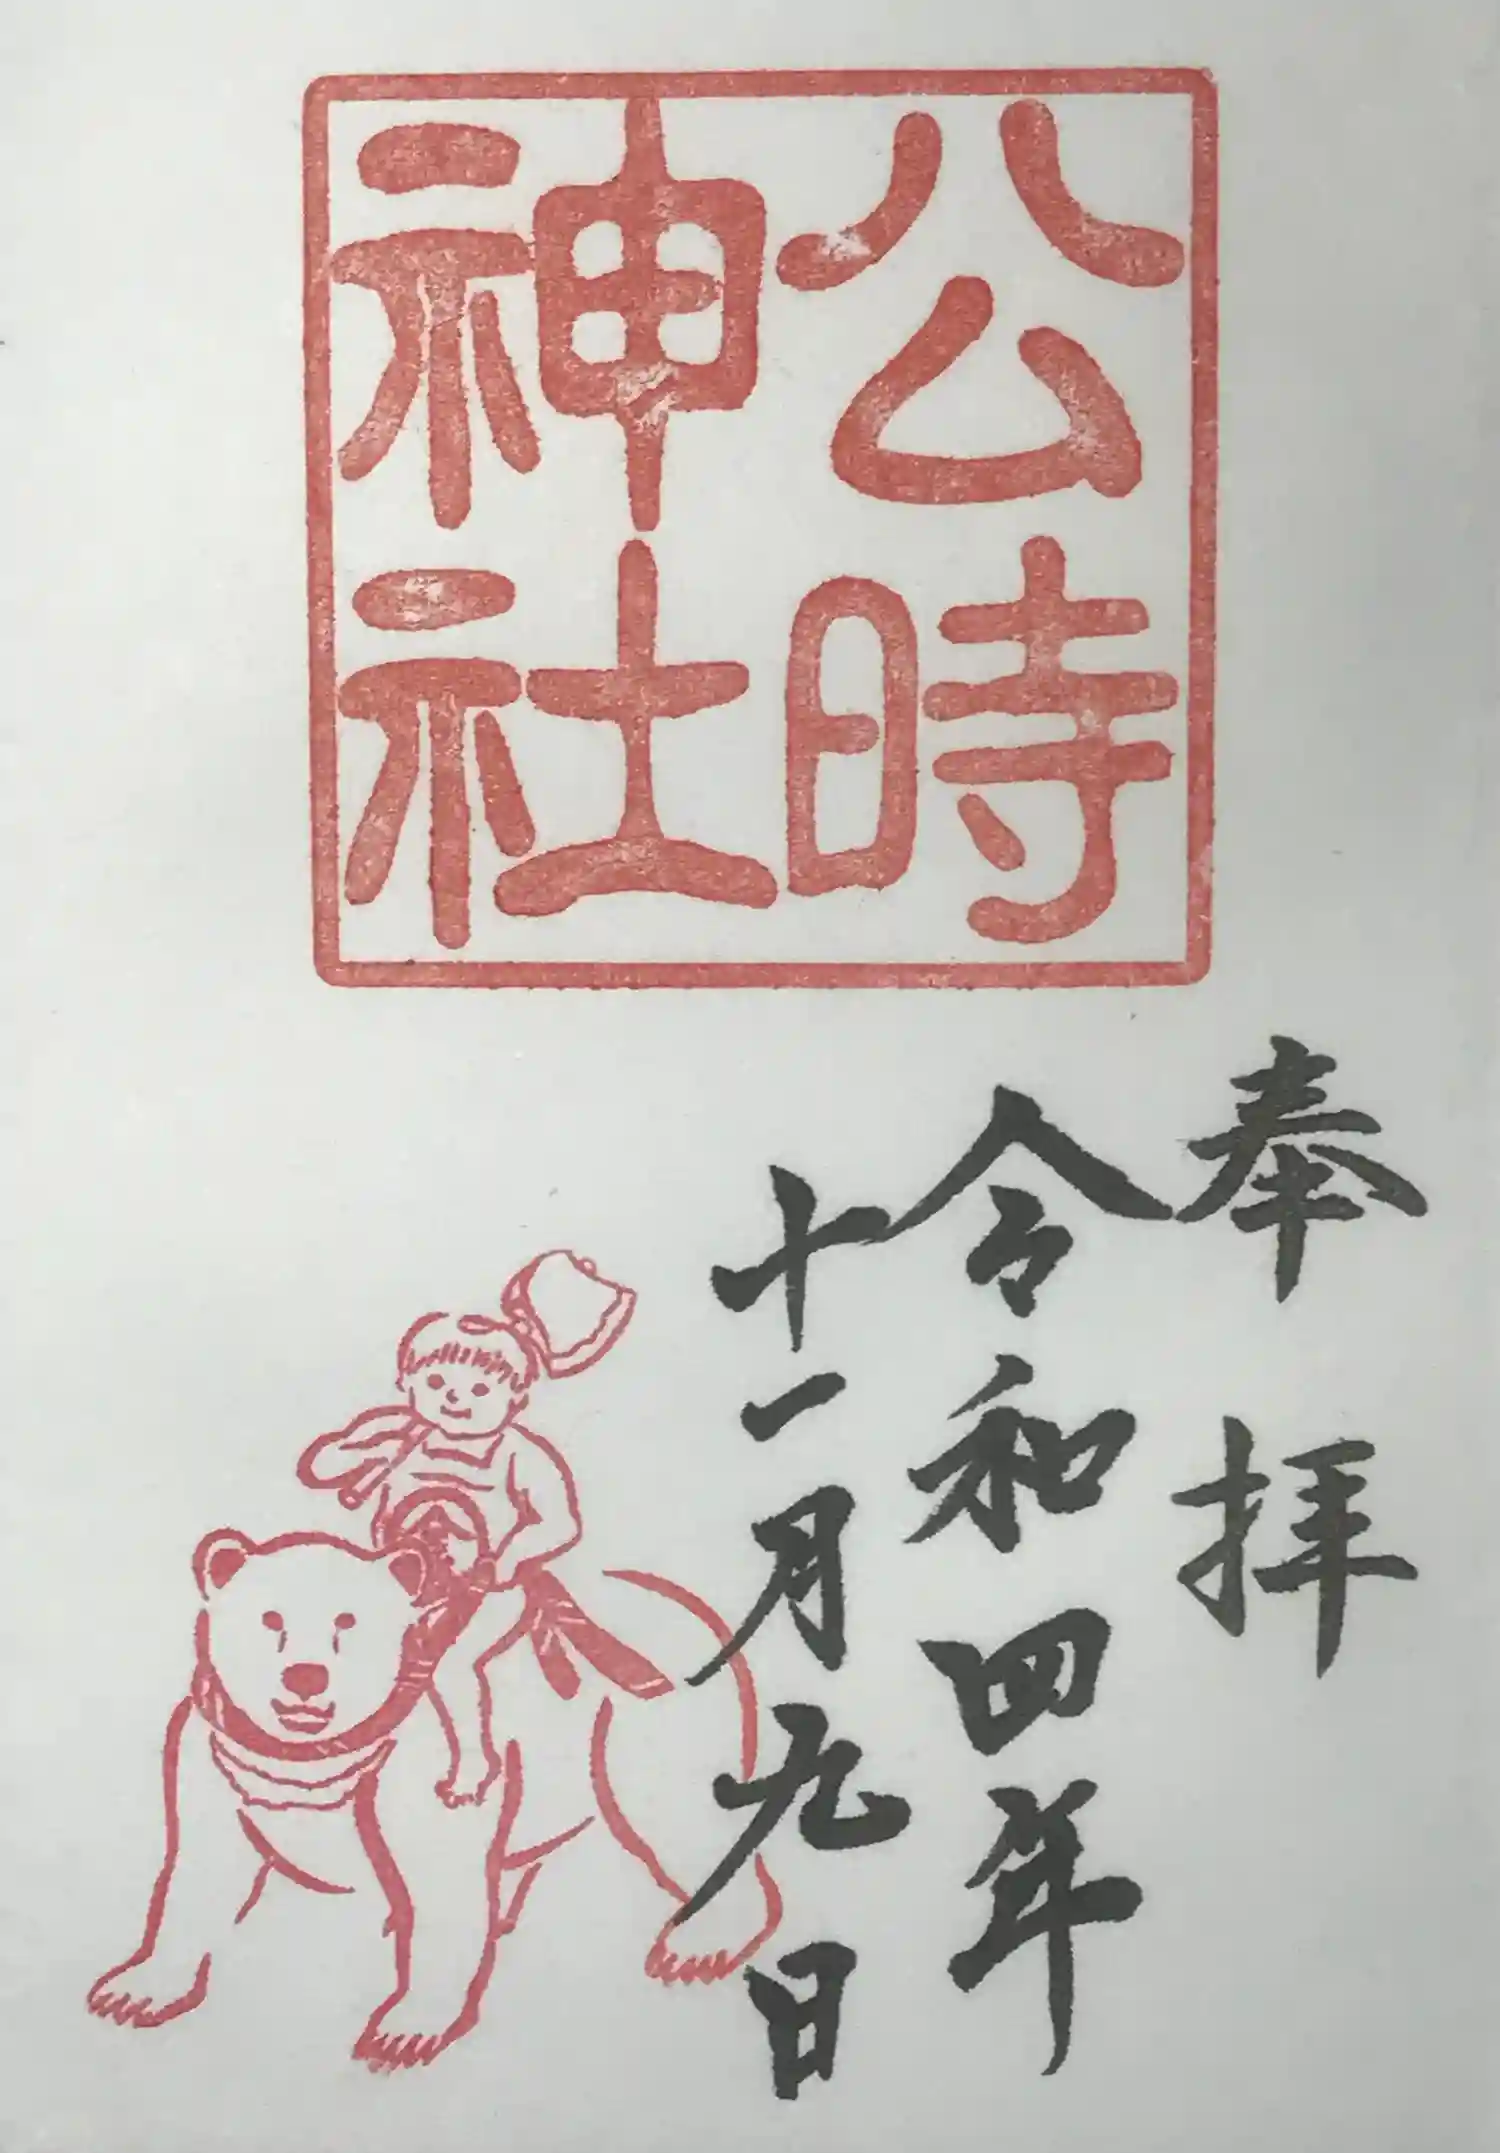 公時
神社
奉拝
令和四年
十一月九日